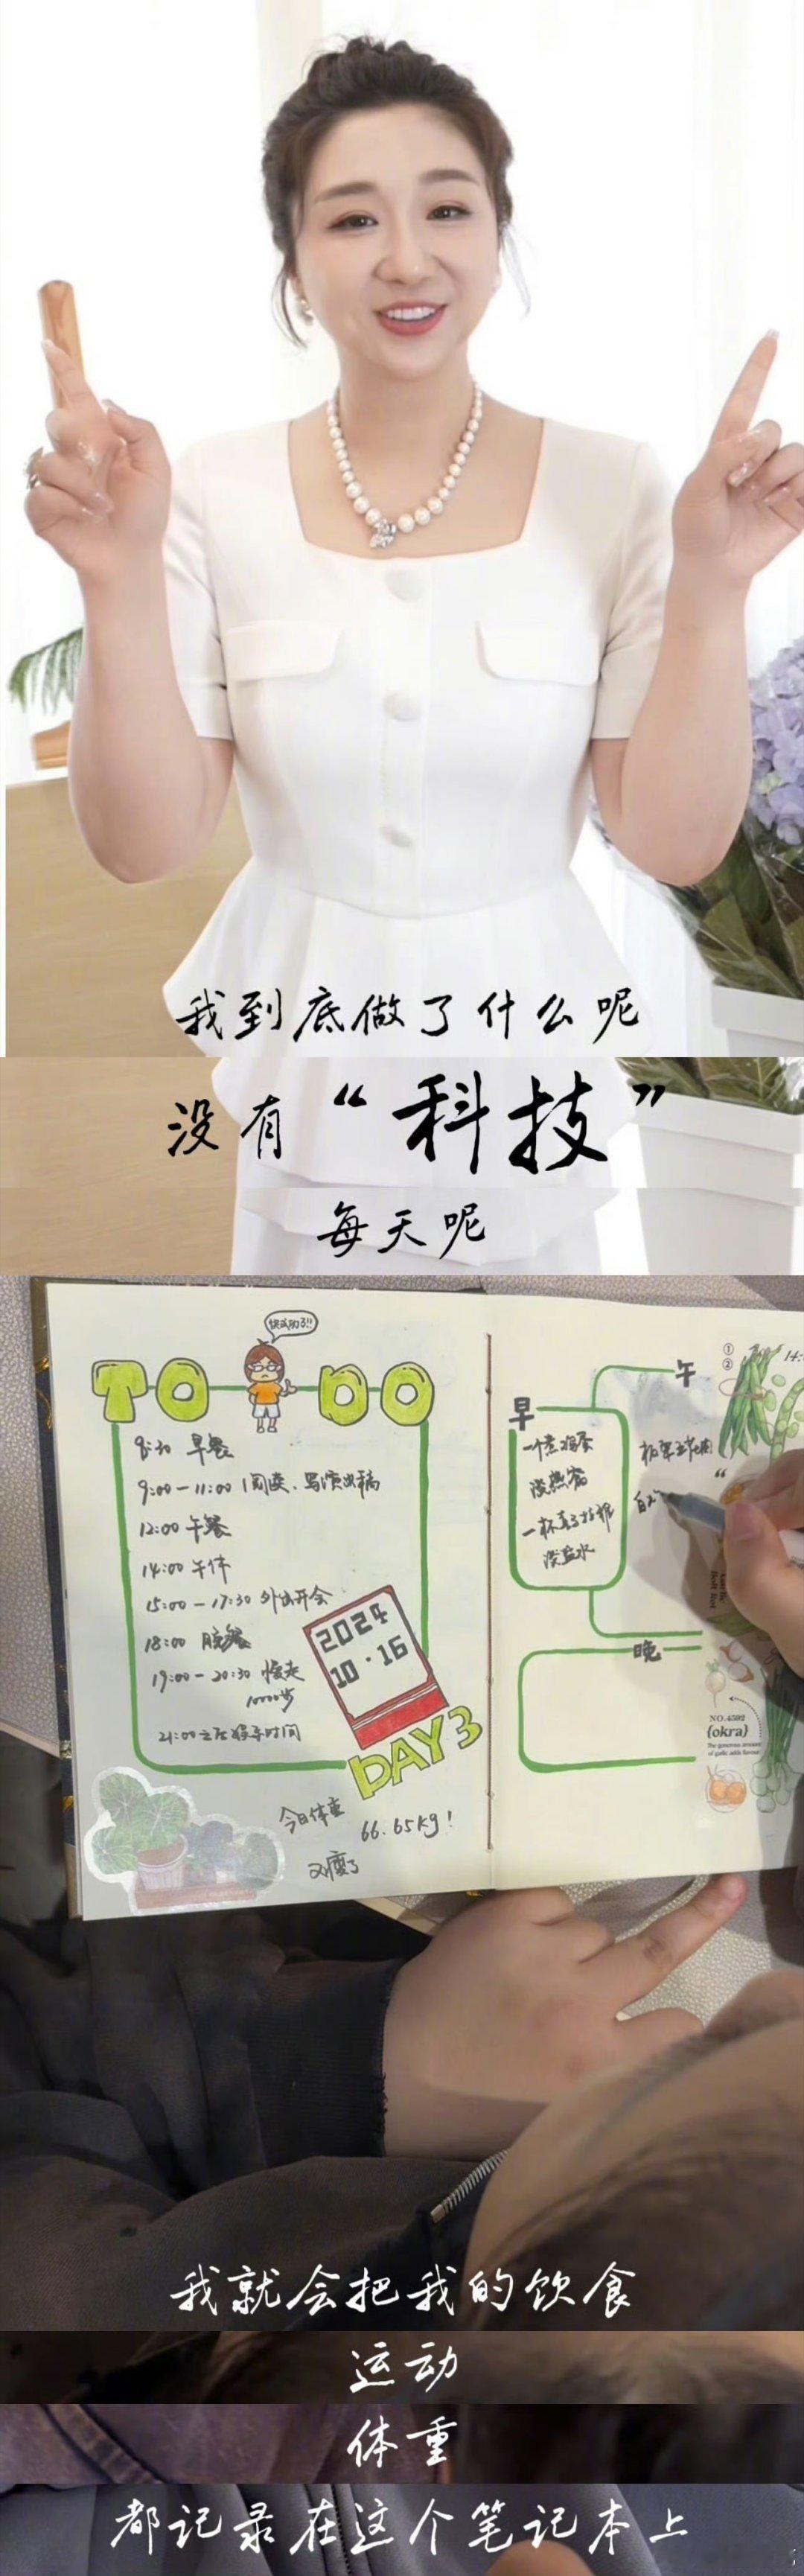 我到底做了什么呢
没有“科技”
每天呢
快成功了!!
TO DO
8:30 早餐
9:00-11:00 阅读、写演出稿
12:00 午餐
14:00 午休
15:00-17:30 外出开会
18:00 晚餐
19:00-20:30 慢走
10000步
21:00之后娱乐时间
2024
10·16
DAY3
今日体重
66.65kg!
又瘦了
早
一个煮鸡蛋
淡盐水
午
①
②
14:
晚
NO.4592
{okra}
The generous amount
of garlic adds flavour
我就会把我的饮食
运动
体重
都记录在这个笔记本上